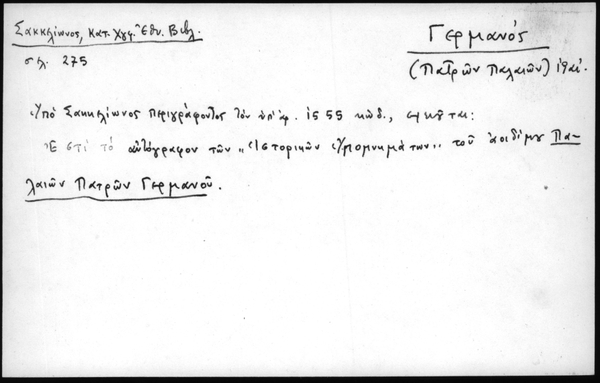 Σακκελίωνος, Κατ. Χγφ. Ἐθν. Βιβλ.
σελ. 275
Γερμανός
(Πατρῶν Παλαιῶν)
Ὑπὸ Σακκελίωνος περιγράφοντος τὸν ὑπ' ἀρ. 1555 κώδ., σημειοῦται:
Ἐστὶ τὸ αὐτόγραφον τῶν „Ἱστορικῶν Ὑπομνημάτων„ τοῦ ἀοιδίμου Πα-
λαιῶν Πατρῶν Γερμανοῦ.